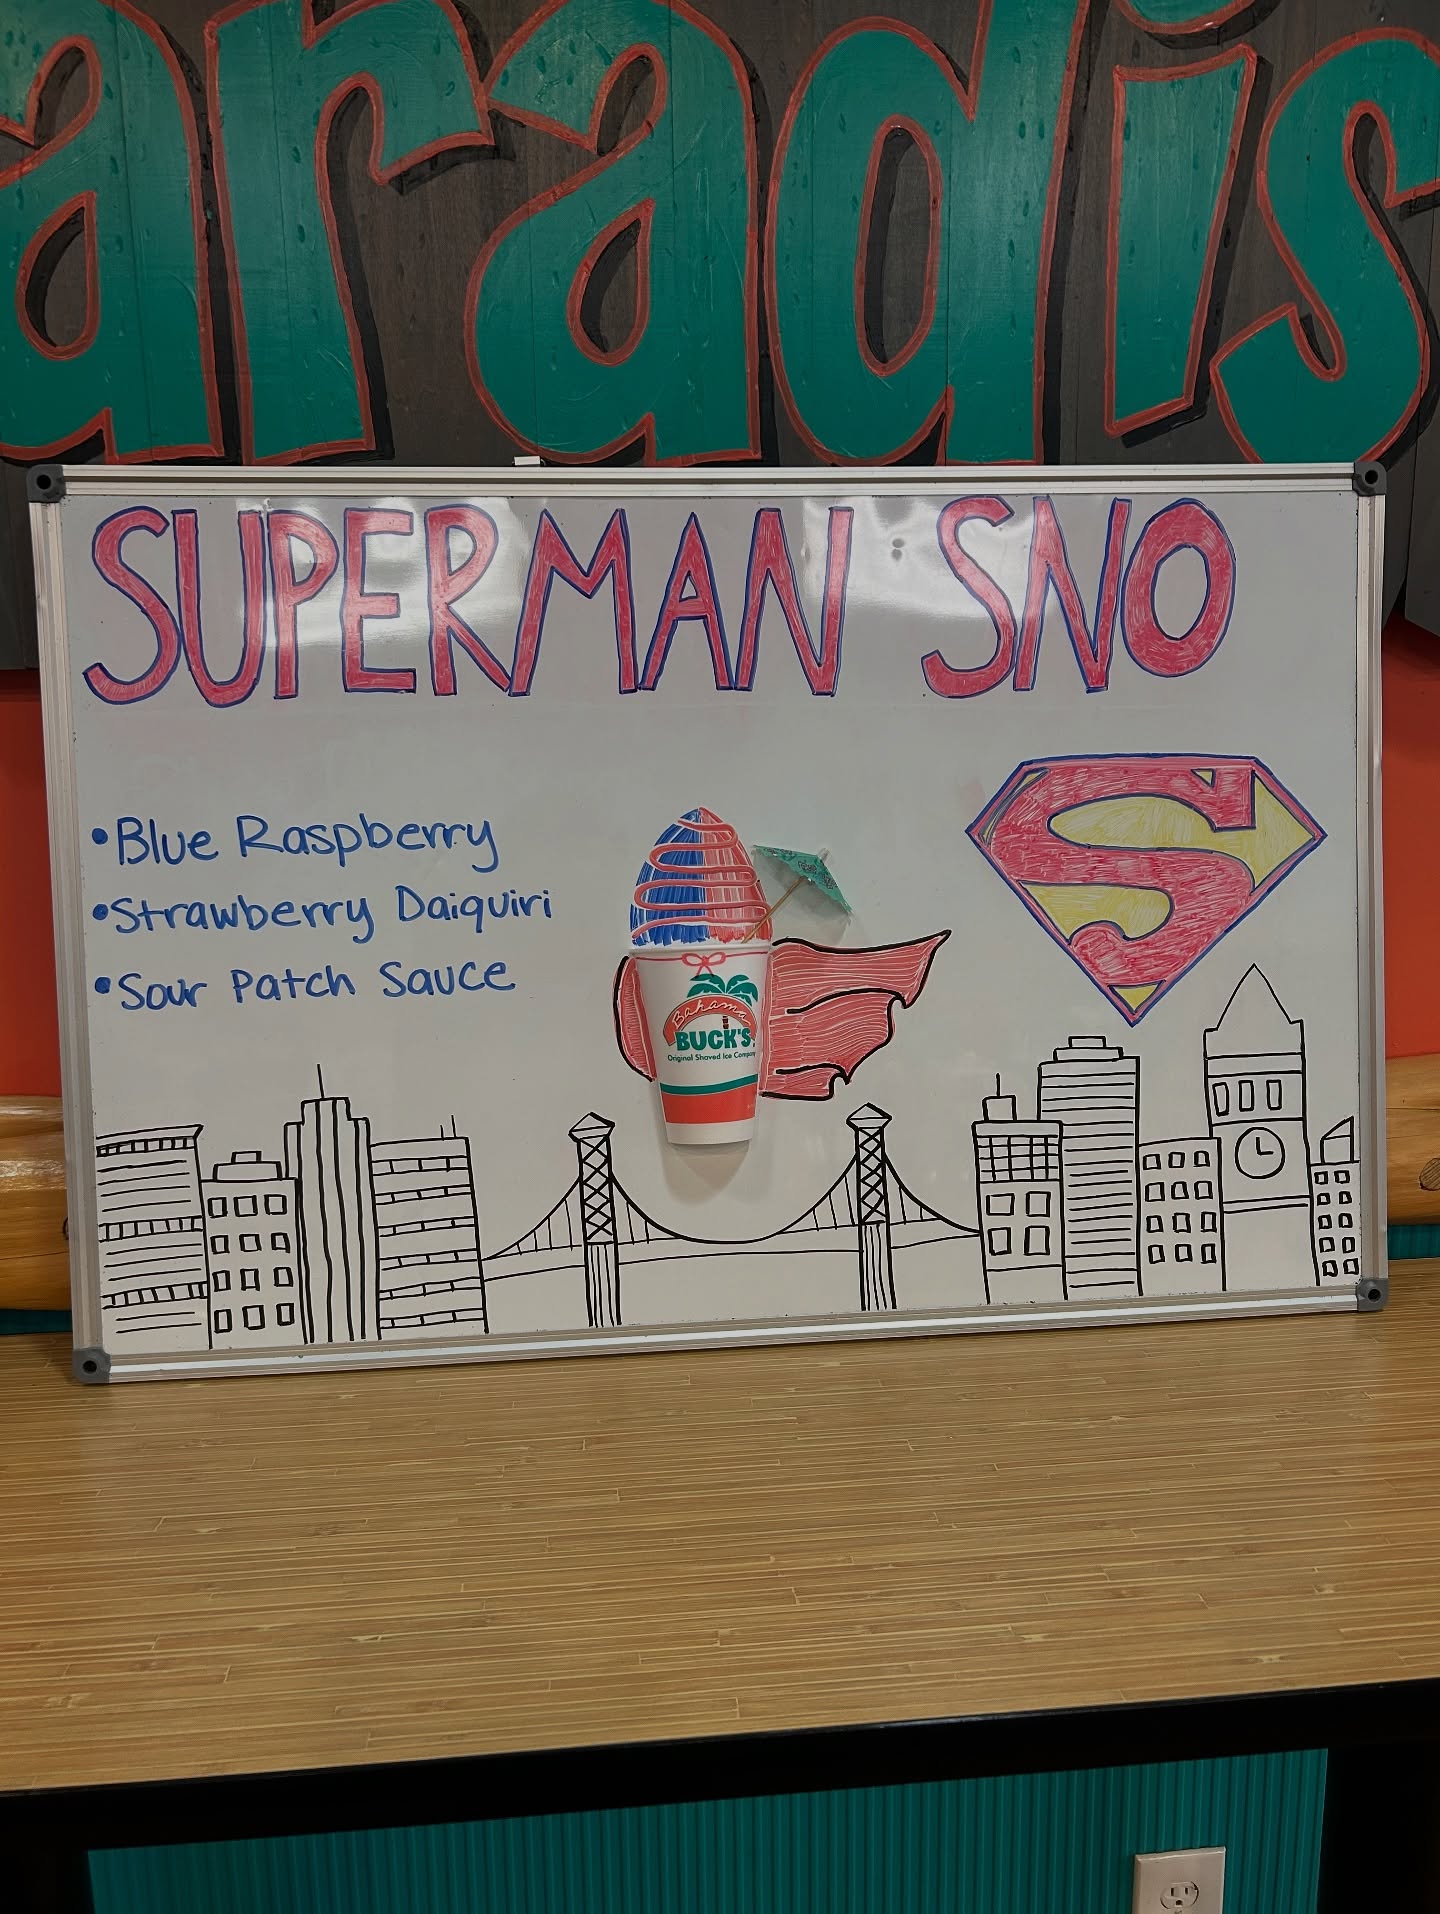 aradis
SUPERMAN SNO
• Blue Raspberry
• Strawberry Daiquiri
• Sour Patch Sauce
S
Bahama
BUCK'S
Original Shaved Ice Company